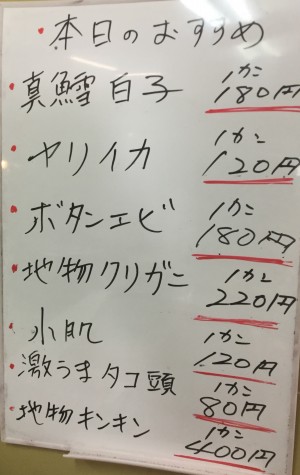 ・本日のおすすめ
・真鱈白子 1カン 180円
・ヤリイカ 1カン 120円
・ボタンエビ 1カン 180円
・地物クリガニ 1カン 220円
・小肌 1カン 120円
・激うまタコ頭 1カン 80円
・地物キンキン 1カン 400円